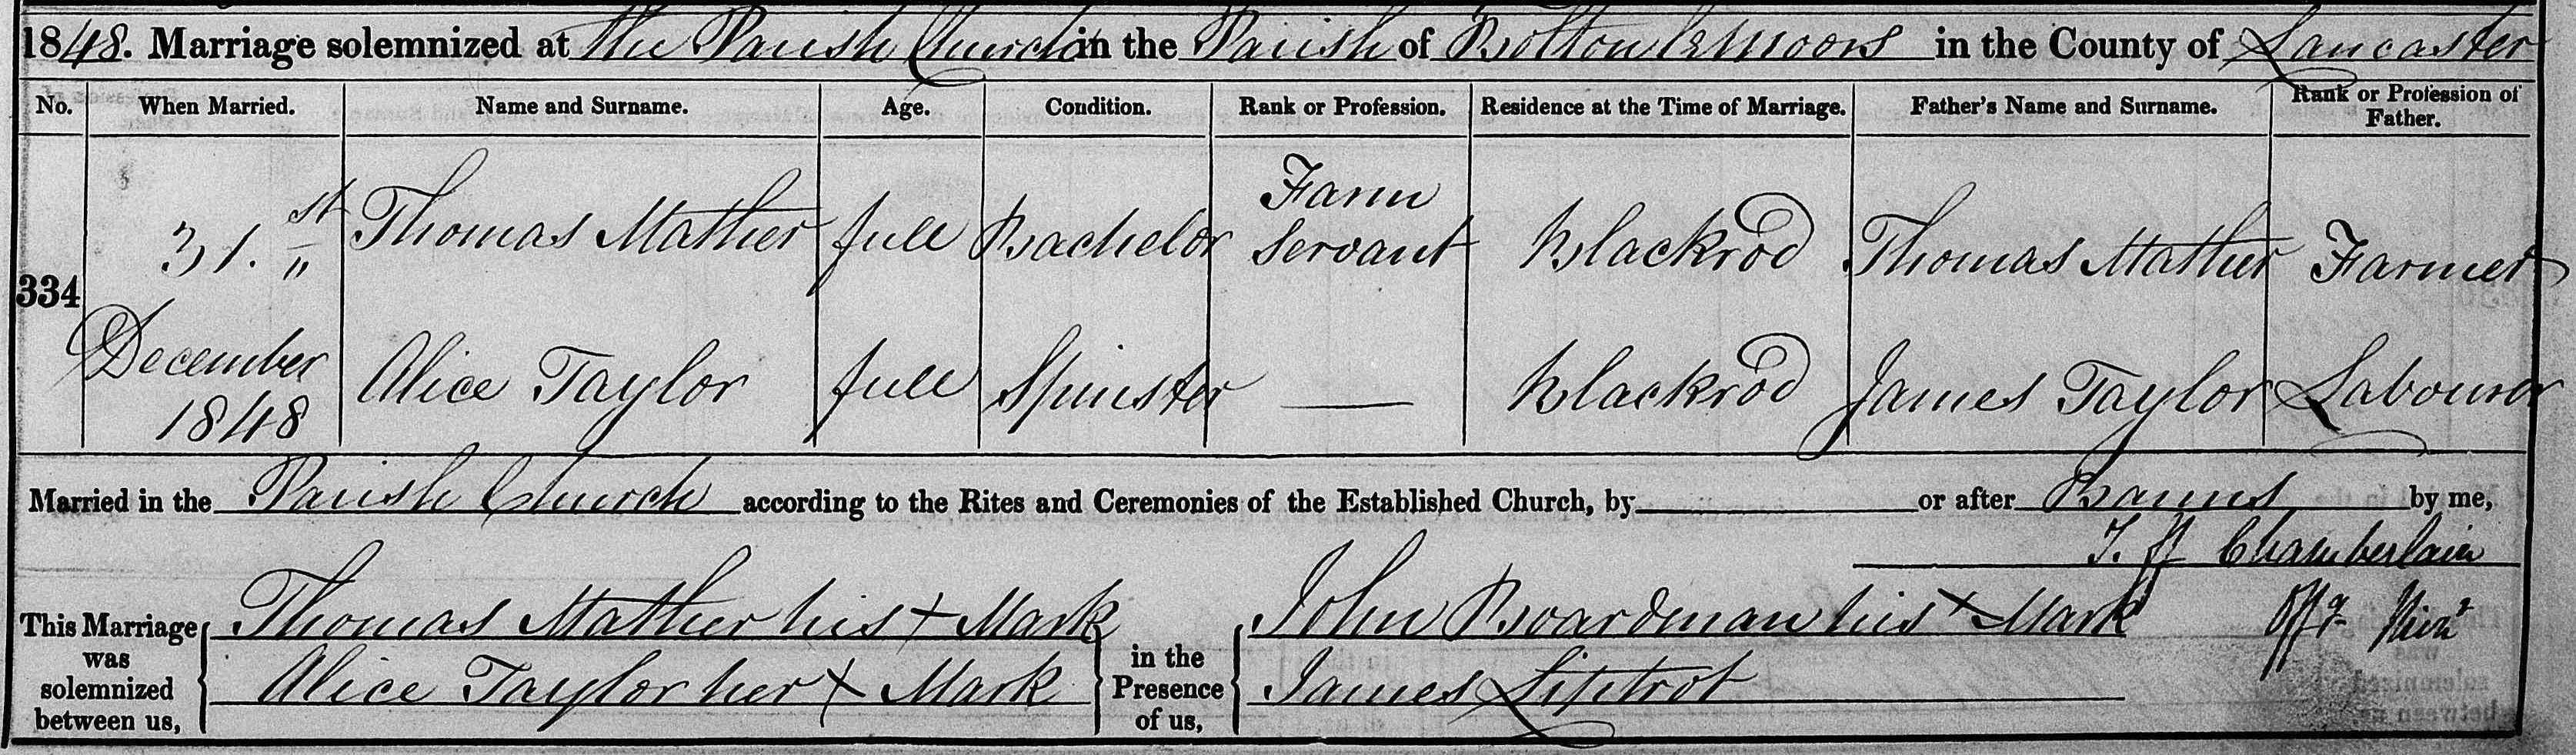 1848. Marriage solemnized at the Parish Church in the Parish of Bolton le Moors in the County of Lancaster
No. When Married. Name and Surname. Age. Condition. Rank or Profession. Residence at the Time of Marriage. Father's Name and Surname. Rank or Profession of Father.
334 31.st December 1848
Thomas Mather full Bachelor Farm Servant Blackrod Thomas Mather Farmer
Alice Taylor full Spinster — Blackrod James Taylor Labourer
Married in the Parish Church according to the Rites and Ceremonies of the Established Church, by or after Banns by me,
T. Chamberlain
This Marriage was solemnized between us, Thomas Mather his x Mark
Alice Taylor her x Mark
in the Presence of us, John Boardman his x Mark
James Liptrot
Offg. Minr